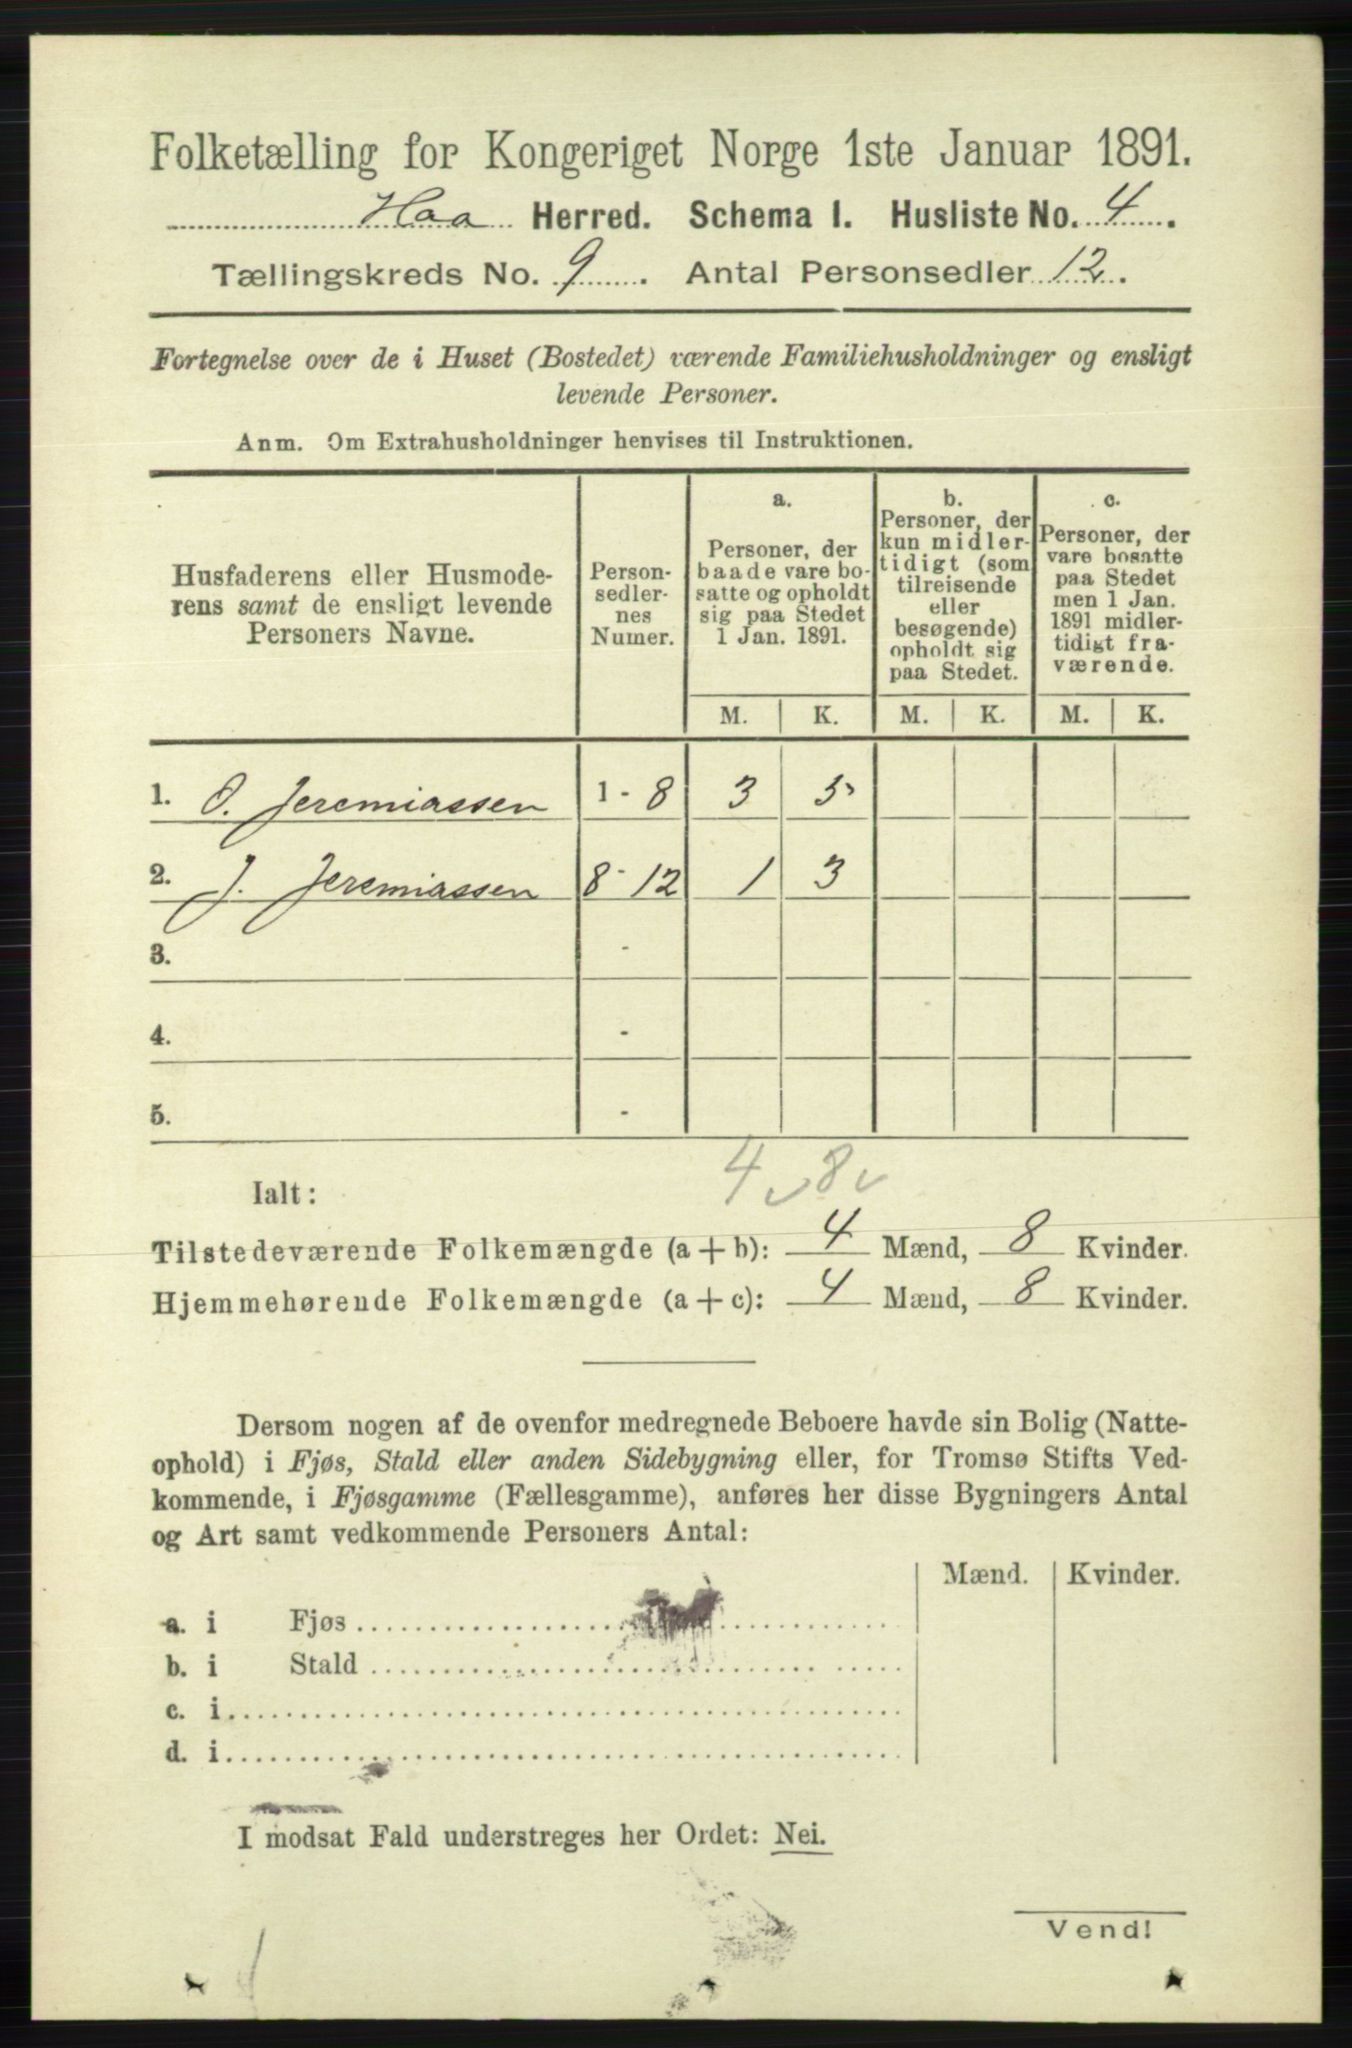 Folketælling for Kongeriget Norge 1ste Januar 1891.
Haa Herred. Schema I. Husliste No. 4.
Tællingskreds No. 9. Antal Personsedler 12.
Fortegnelse over de i Huset (Bostedet) værende Familiehusholdninger og ensligt
levende Personer.
Anm. Om Extrahusholdninger henvises til Instruktionen.
Husfaderens eller Husmode-
rens samt de ensligt levende
Personers Navne.
Person-
sedler-
nes
Numer.
a.
Personer, der
baade vare bo-
satte og opholdt
sig paa Stedet
1 Jan. 1891.
b.
Personer, der
kun midler-
tidigt (som
tilreisende
eller
besøgende)
opholdt sig
paa Stedet.
c.
Personer, der
vare bosatte
paa Stedet
men 1 Jan.
1891 midler-
tidigt fra-
værende.
M. K. M. K. M. K.
1. O. Jeremiassen 1 - 8 3 5
2. J. Jeremiassen 8 - 12 1 3
3. -
4. -
5. -
4 8
Ialt:
Tilstedeværende Folkemængde (a + b): 4 Mænd, 8 Kvinder.
Hjemmehørende Folkemængde (a + c): 4 Mænd, 8 Kvinder.
Dersom nogen af de ovenfor medregnede Beboere havde sin Bolig (Natte-
ophold) i Fjøs, Stald eller anden Sidebygning eller, for Tromsø Stifts Ved-
kommende, i Fjøsgamme (Fællesgamme), anføres her disse Bygningers Antal
og Art samt vedkommende Personers Antal:
Mænd. Kvinder.
a. i Fjøs
b. i Stald
c. i
d. i
I modsat Fald understreges her Ordet: Nei.
Vend!